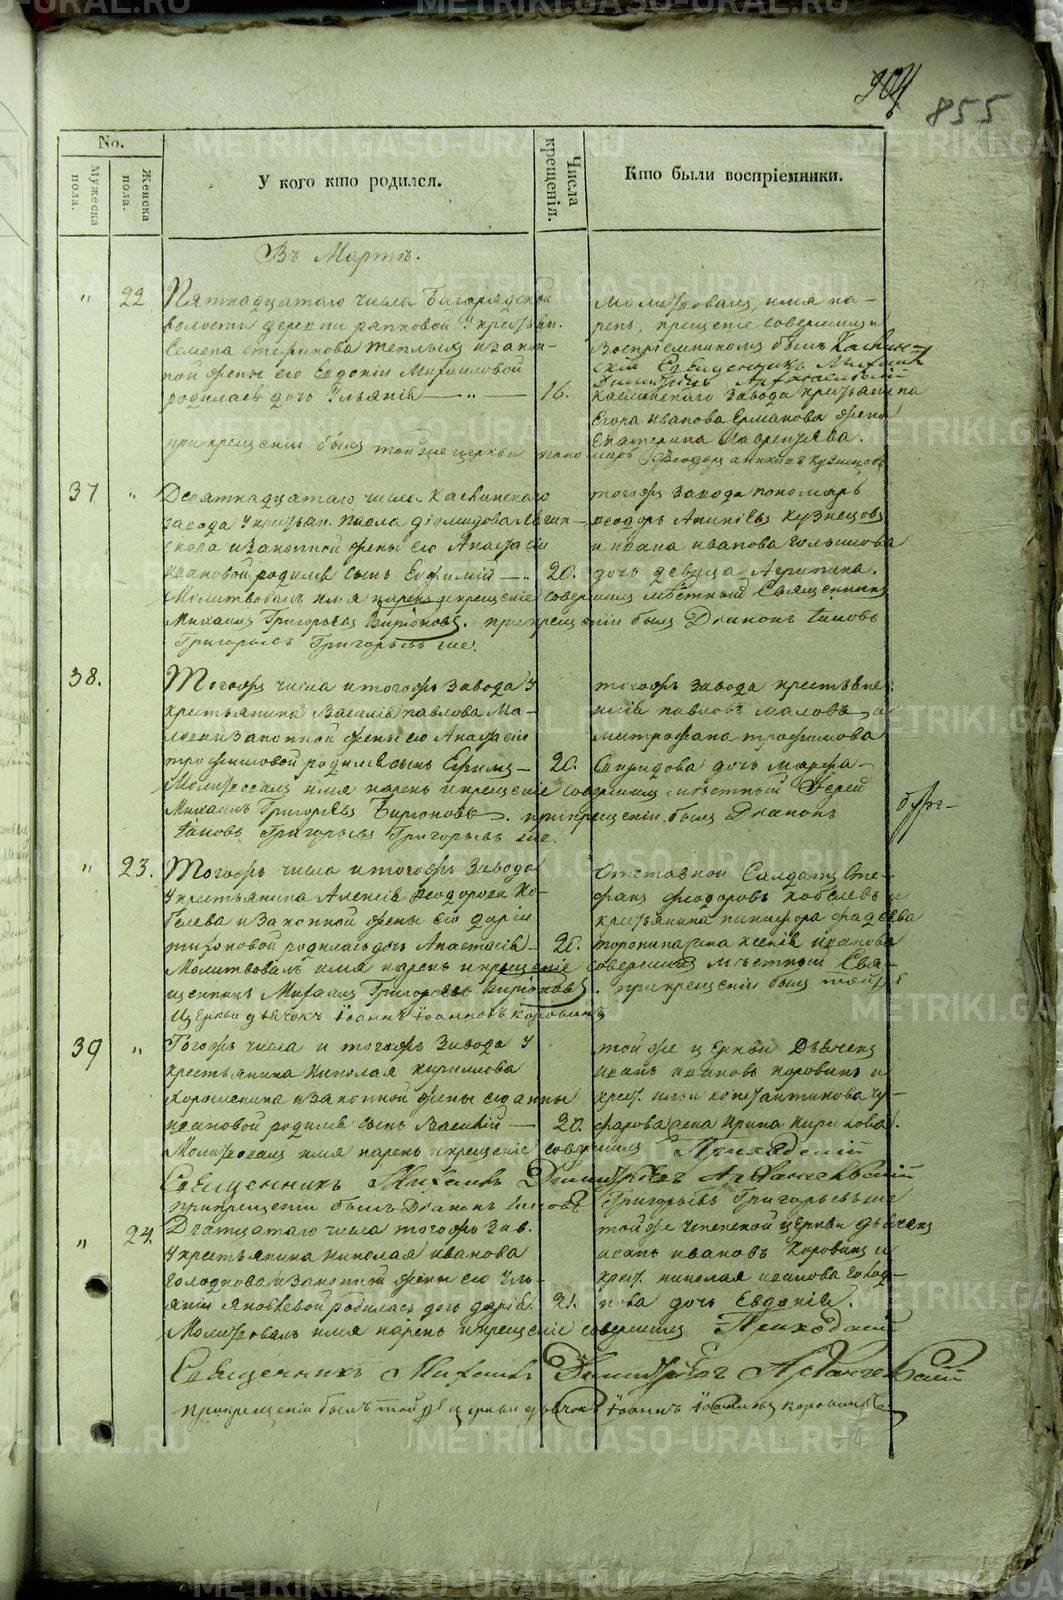 904
855
No.
Мужеска пола.
Женска пола.
У кого кто родился.
Числа крещенія.
Кто были воспріемники.
Въ Мартѣ.
" 22 Пятнадцатаго числа
волости деревни у крестьян.
Семена Теплыхъ и закон-
ной жены его Евдокіи Михаиловой
родилась дочь Іуліанія 16.
молитвовалъ, имя на-
рекъ, крещеніе совершилъ
Воспріемникомъ былъ Каслин-
скій Священникъ Михаилъ
Димитріевъ Архангельскій
Каслинскаго завода крестьянина
Егора Иванова Ермакова жена
Екатерина Лаврентьева.
при крещеніи былъ тойже церкви пономарь Ѳеодоръ Аникинъ Кузнецовъ
37 " Девятнадцатаго числа Каслинскаго
завода у крестьян. Павла Діомидова
и законной жены его Анастасіи
Ивановой родился сынъ Евфимій 20.
тогожъ завода пономарь
Ѳеодоръ Аникіевъ Кузнецовъ
и Ивана Иванова Голышова
дочь девица Агрипина.
Молитвовалъ имя нарекъ и крещеніе совершилъ мѣстный Священникъ
Михаилъ Григорьевъ Бирюковъ. при крещеніи былъ Діаконъ Іаковъ
Григорьевъ Григорьевъ же.
38. Тогожъ числа и тогожъ завода у
крестьянина Василія Павлова Ма-
лова и законной жены его Анастасіи
Трофимовой родился сынъ Ефимъ 20.
тогожъ завода крестьяне:
Павловъ Маловъ и
Митрофана Трофимова
Свиридова дочь Марфа
Молитвовалъ имя нарекъ и крещеніе совершилъ мѣстный Іерей
Михаилъ Григорьевъ Бирюковъ. при крещеніи былъ Діаконъ
Іаковъ Григорьевъ Григорьевъ же.
" 23. Тогожъ числа и тогожъ завода
у крестьянина Алексія Ѳеодорова Ко-
белева и законной жены его Даріи
Тихоновой родилась дочь Анастасія 20.
Отставной Салдатъ Сте-
фанъ Ѳеодоровъ Кобелевъ и
крестьянина Никифора Фадѣева
жена Ксенія Иванова
Молитвовалъ имя нарекъ и крещеніе совершилъ мѣстный Свя-
щенникъ Михаилъ Григорьевъ Бирюковъ. при крещеніи былъ тойже
Церкви дьячокъ Іоаннъ Іоанновъ Коровинъ
39 " Тогожъ числа и тогожъ завода у
крестьянина Николая Кирилова
Хорошенина и законной жены его Анны
Ивановой родился сынъ Василій 20.
тойже церкви Дьячекъ
Иванъ Ивановъ Коровинъ и
крест. Ильи Константинова
жена Ирина Кирилова.
Молитвовалъ имя нарекъ и крещеніе совершилъ Приходскій
Священникъ Михаилъ Димитріевъ Архангельскій
при крещеніи былъ Діаконъ Іаковъ Григорьевъ Григорьевъ же
" 24. Дватцатаго числа тогожъ зав.
у крестьянина Николая Иванова
Голоднова и законной жены его Уль-
яніи Яковлевой родилась дочь Дарія. 21.
тойже церкви дьячекъ
Иванъ Ивановъ Коровинъ и
крест. Николая Иванова Голод-
нова дочь Евдокія.
Молитвовалъ имя нарекъ и крещеніе совершилъ Приходскій
Священникъ Михаилъ Димитріевъ Архангельскій
при крещеніи былъ тойже церкви дьячокъ Іоаннъ Іоанновъ Коровинъ
METRIKI.GASO-URAL.RU